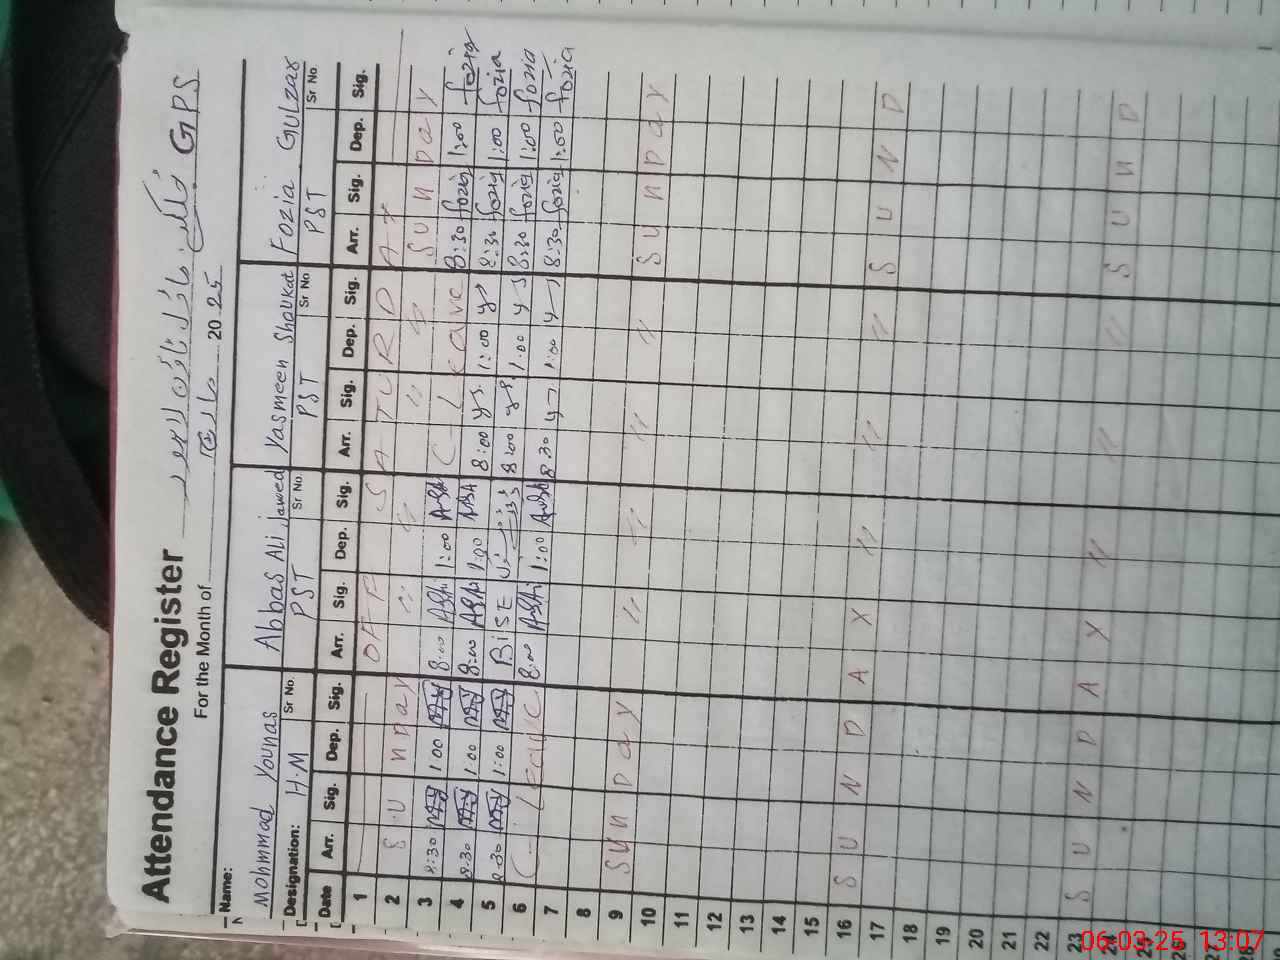 Attendance Register
For the Month of مارچ 20 25
ماڈل ٹاؤن لاہور GPS
Name: Mohmmad Younas Abbas Ali Jawed Yasmeen Shoukat Fozia Gulzar
Designation: H.M Sr No. PST Sr No. PST Sr No PST Sr No
Date Arr. Sig. Dep. Sig. Arr. Sig. Dep. Sig. Arr. Sig. Dep. Sig. Arr. Sig. Dep. Sig.
1 OFF SATURDAY
2 SUnDay " " " " SunDay
3 8:30 1:00 8:00 1:00 C-Leave 8:30 fozia 1:00 fozia
4 8:30 1:00 8:00 1:00 8:00 1:00 8:30 fozia 1:00 fozia
5 8:30 1:00 BiSE 8:00 1:00 8:30 fozia 1:00 fozia
6 C. Leave 8:00 1:00 8:30 1:00 8:30 fozia 1:00 fozia
7
8
9 SunDay " " " " SunDay
10
11
12
13
14
15
16 SUNDAY " " " SUND
17
18
19
20
21
22
23 SUNDAY " " " SUND
24
25
26
27
28
06-03-25 13:07